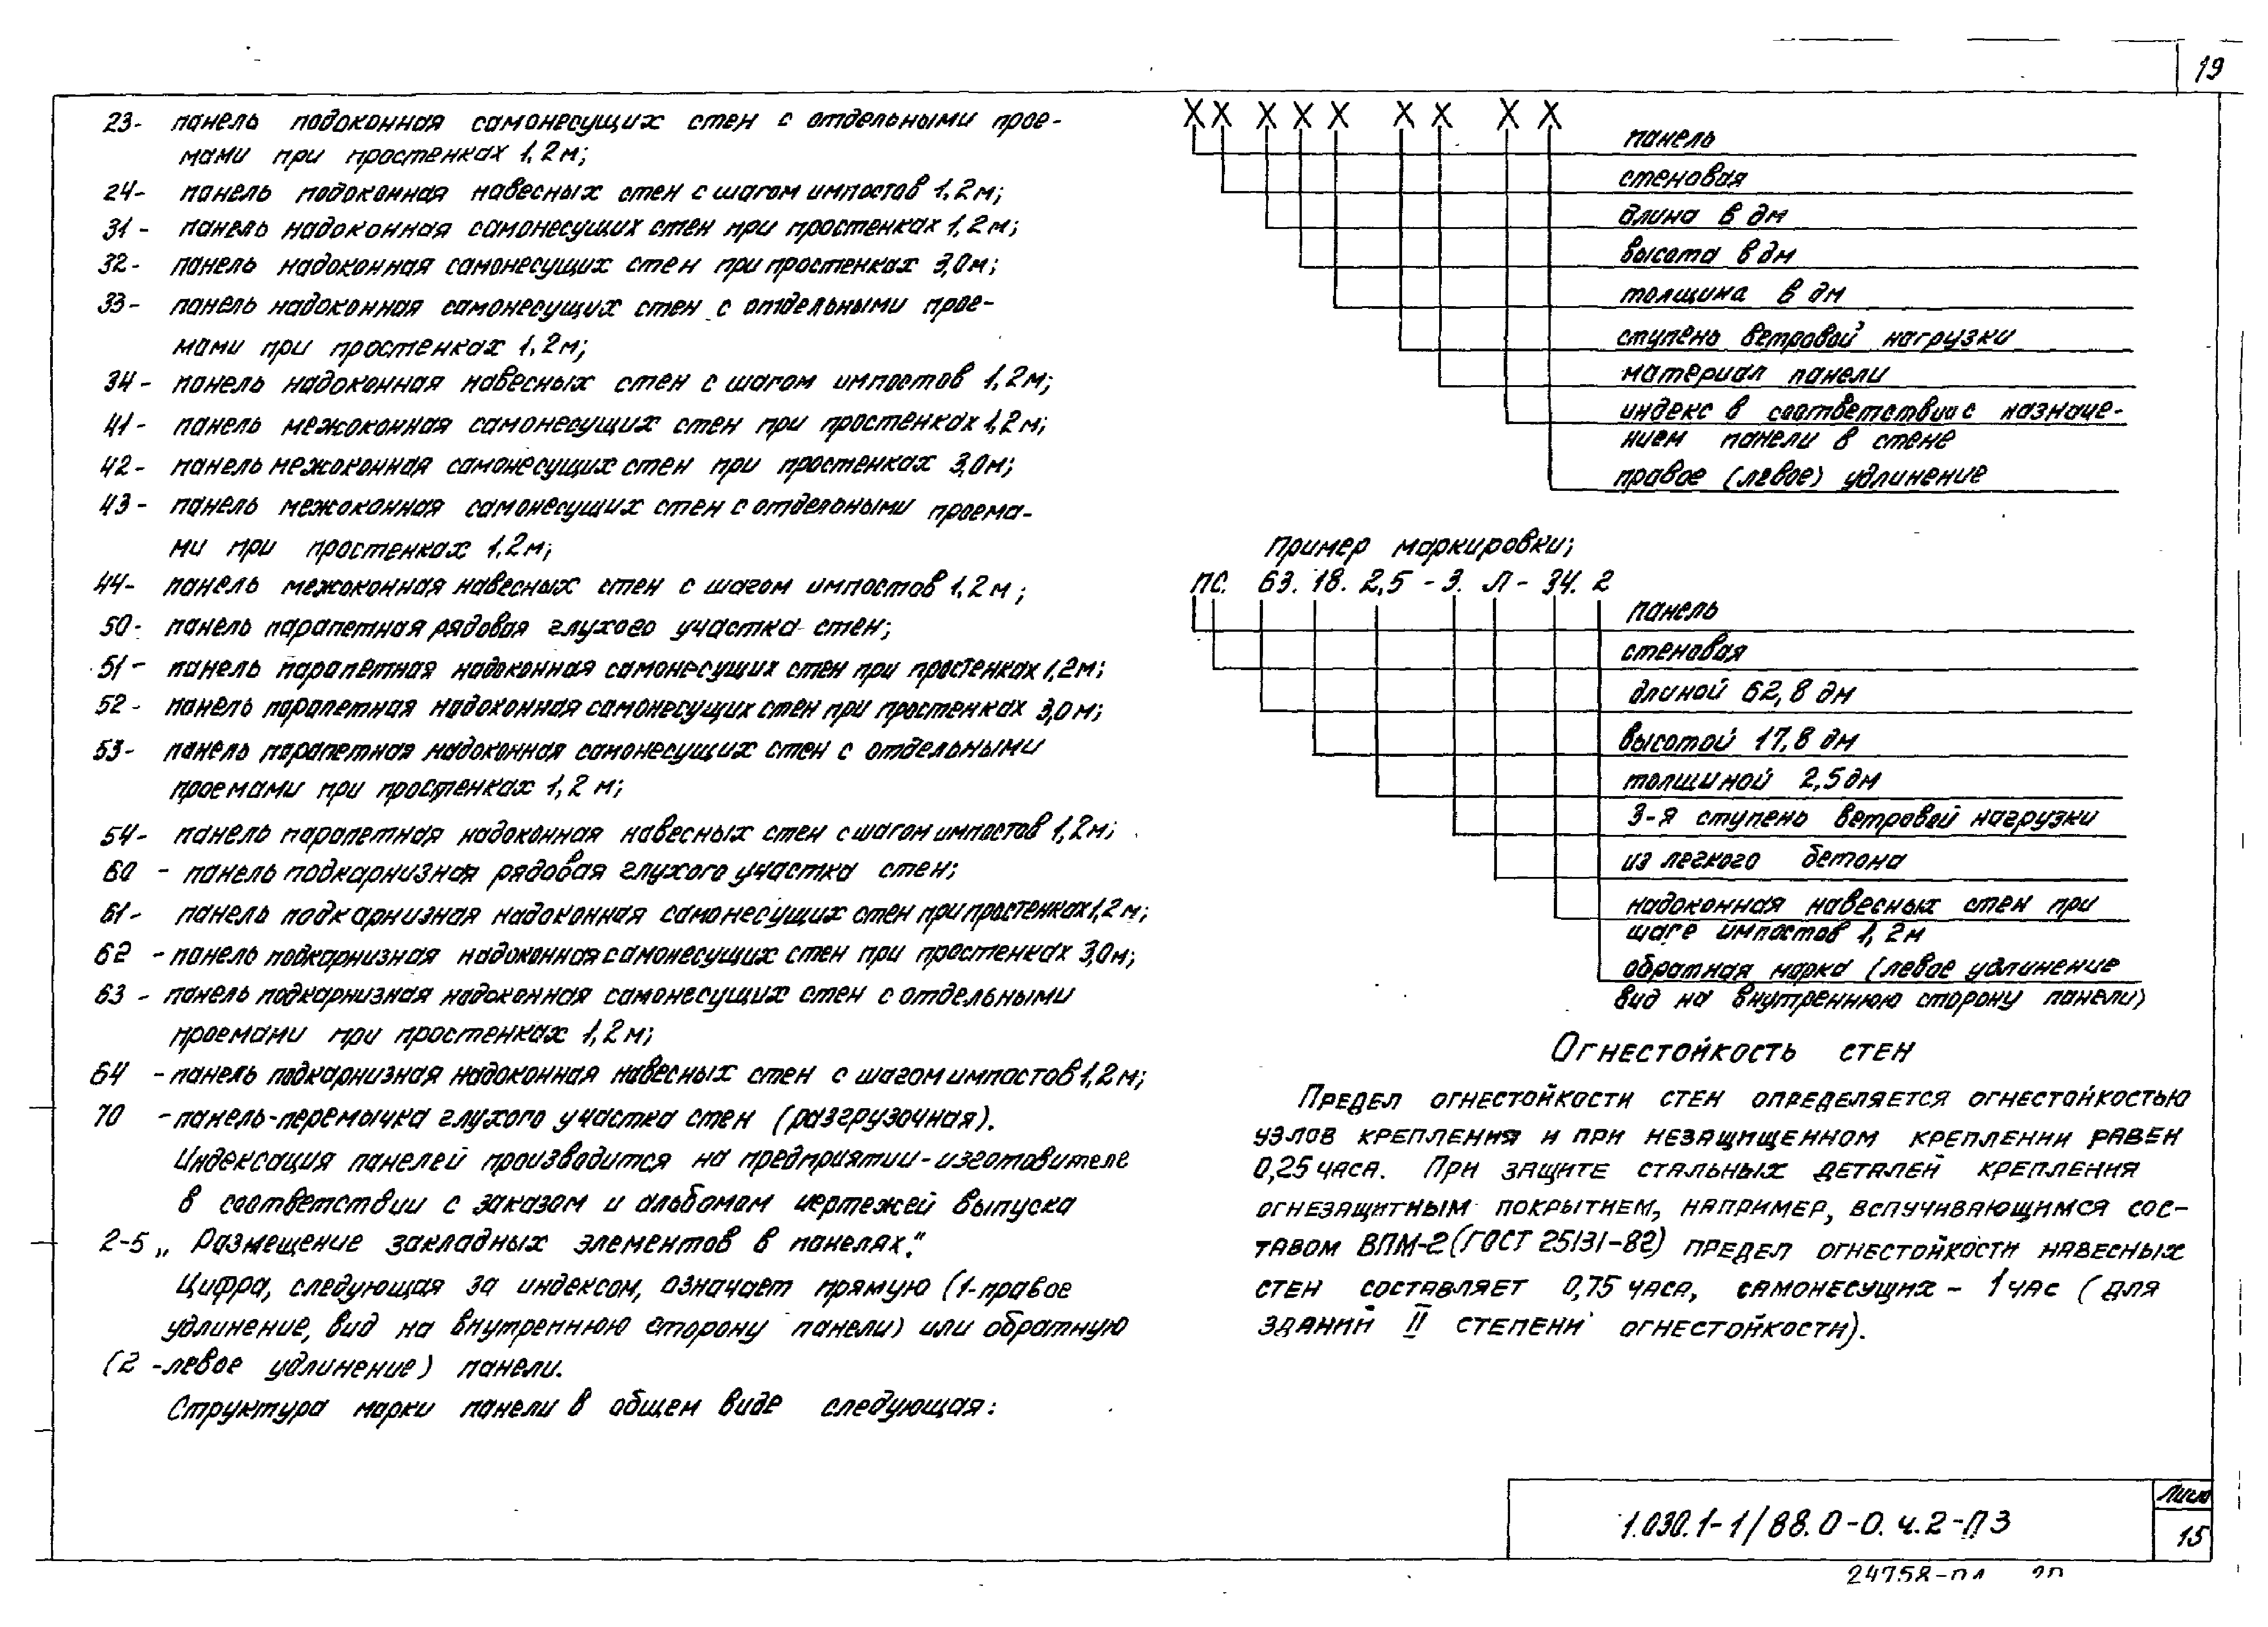 19
23- панель подоконная самонесущих стен с отдельными прое-
мами при простенках 1,2м;
24- панель подоконная навесных стен с шагом импостов 1,2м;
31- панель надоконная самонесущих стен при простенках 1,2м;
32- панель надоконная самонесущих стен при простенках 3,0м;
33- панель надоконная самонесущих стен с отдельными прое-
мами при простенках 1,2м;
34- панель надоконная навесных стен с шагом импостов 1,2м;
41- панель межоконная самонесущих стен при простенках 1,2м;
42- панель межоконная самонесущих стен при простенках 3,0м;
43- панель межоконная самонесущих стен с отдельными проема-
ми при простенках 1,2м;
44- панель межоконная навесных стен с шагом импостов 1,2м;
50- панель парапетная рядовая глухого участка стен;
51- панель парапетная надоконная самонесущих стен при простенках 1,2м;
52- панель парапетная надоконная самонесущих стен при простенках 3,0м;
53- панель парапетная надоконная самонесущих стен с отдельными
проемами при простенках 1,2м;
54- панель парапетная надоконная навесных стен с шагом импостов 1,2м;
60 - панель подкарнизная рядовая глухого участка стен;
61- панель подкарнизная надоконная самонесущих стен при простенках 1,2м;
62 - панель подкарнизная надоконная самонесущих стен при простенках 3,0м;
63 - панель подкарнизная надоконная самонесущих стен с отдельными
проемами при простенках 1,2м;
64 - панель подкарнизная надоконная навесных стен с шагом импостов 1,2м;
70 - панель-перемычка глухого участка стен (разгрузочная).
Индексация панелей производится на предприятии-изготовителе
в соответствии с заказом и альбомом чертежей выпуска
2-5 „Размещение закладных элементов в панелях."
Цифра, следующая за индексом, означает прямую (1-правое
удлинение, вид на внутреннюю сторону панели) или обратную
(2 -левое удлинение) панели.
Структура марки панели в общем виде следующая:
XX XXX XX X X
панель
стеновая
длина в дм
высота в дм
толщина в дм
ступень ветровой нагрузки
материал панели
индекс в соответствии с назначе-
нием панели в стене
правое (левое) удлинение
Пример маркировки;
ПС. 63. 18. 2,5 - 3. Л - 34. 2
панель
стеновая
длиной 62,8 дм
высотой 17,8 дм
толщиной 2,5дм
3-я ступень ветровой нагрузки
из легкого бетона
надоконная навесных стен при
шаге импостов 1,2м
обратная марка (левое удлинение
вид на внутреннюю сторону панели)
Огнестойкость стен
Предел огнестойкости стен определяется огнестойкостью
узлов крепления и при незащищенном креплении равен
0,25 часа. При защите стальных деталей крепления
огнезащитным покрытием, например, вспучивающимся сос-
тавом ВПМ-2 (ГОСТ 25131-82) предел огнестойкости навесных
стен составляет 0,75 часа, самонесущих - 1 час (для
зданий II степени огнестойкости).
1.030.1-1/88.0-0.ч.2-ПЗ
Лист
15
24758-